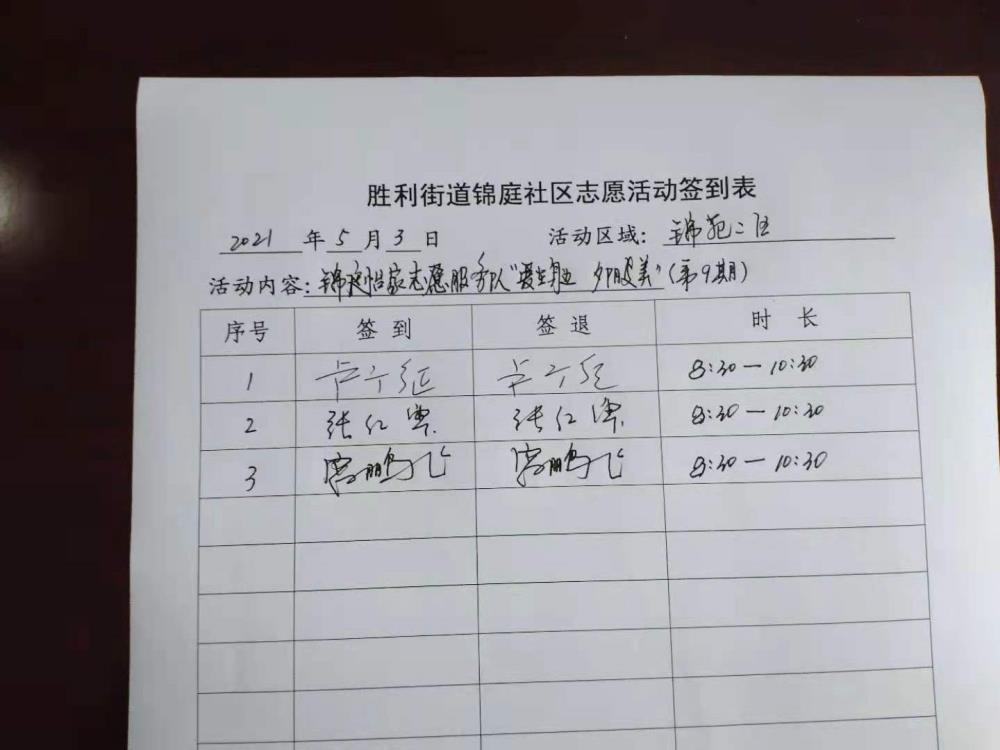 胜利街道锦庭社区志愿活动签到表
2021 年 5 月 3 日 活动区域: 锦苑二区
活动内容: 锦庭怡家志愿服务队"爱 美"(第9期)
序号 签到 签退 时长
1 8:30—10:30
2 张红 张红 8:30—10:30
3 鹏飞 鹏飞 8:30—10:30